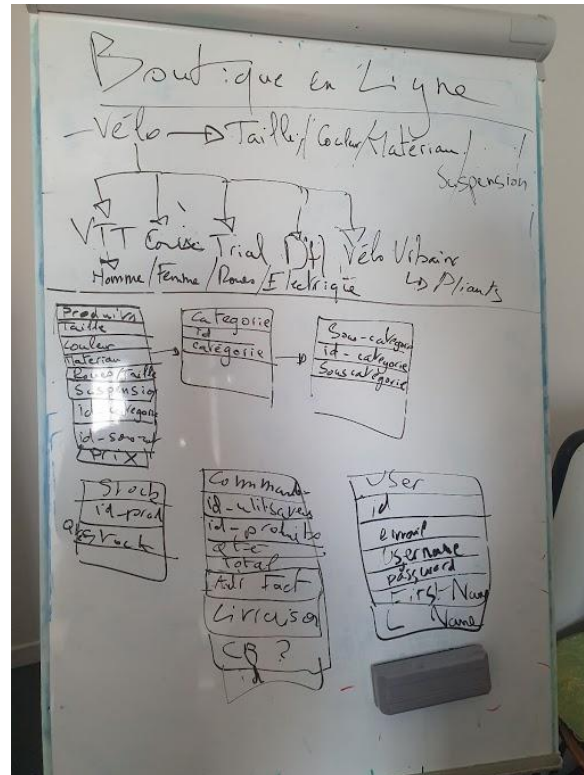 Boutique en Ligne
- Vélo → Taille / Couleur / Matériau /
Suspension
VTT Trial Vélo Urbain
Homme / Femme / Roues / Electrique ↳ Pliants
Produits
Taille
Couleur
Materiau
Roues/Taille
Suspension
id-categorie
Prix
Categorie
id
catégorie
Sous-categorie
id-catégorie
Souscatégorie
Stock
id-prod
Qt Stock
id-produits
Qt-é
Total
Adr Fact
Livraison
CB ?
id
User
id
email
Username
password
First-Name
L Name